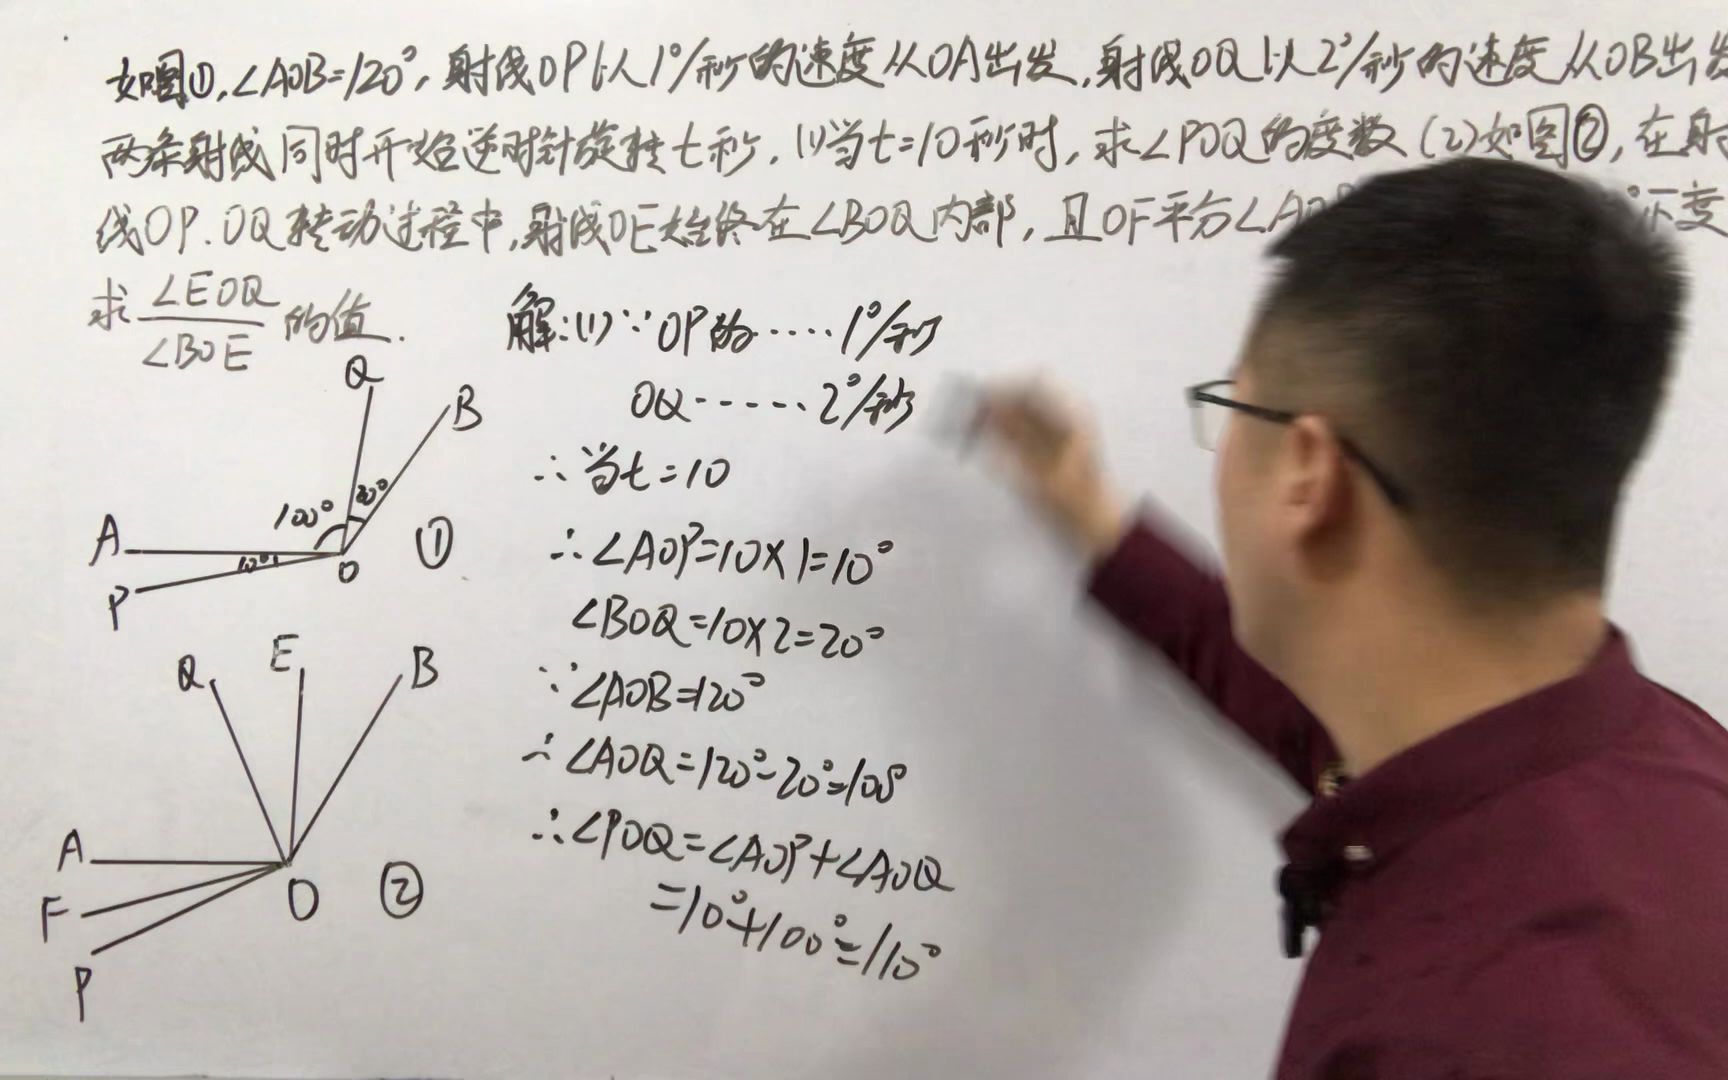 如图①,∠AOB=120°,射线OP以1°/秒的速度从OA出发,射线OQ以2°/秒的速度从OB出发
两条射线同时开始逆时针旋转t秒,(1)当t=10秒时,求∠POQ的度数(2)如图②,在射
线OP.OQ转动过程中,射线OE始终在∠BOQ内部,且OF平分∠AO
求∠EOQ/∠BOE的值.
解:(1)∵OP的·····1°/秒
OQ·····2°/秒
∴当t=10
∴∠AOP=10×1=10°
∠BOQ=10×2=20°
∵∠AOB=120°
∴∠AOQ=120°-20°=100°
∴∠POQ=∠AOP+∠AOQ
=10°+100°=110°
Q
B
100°
20°
A
10°
O
①
P
Q
E
B
A
F
O
②
P